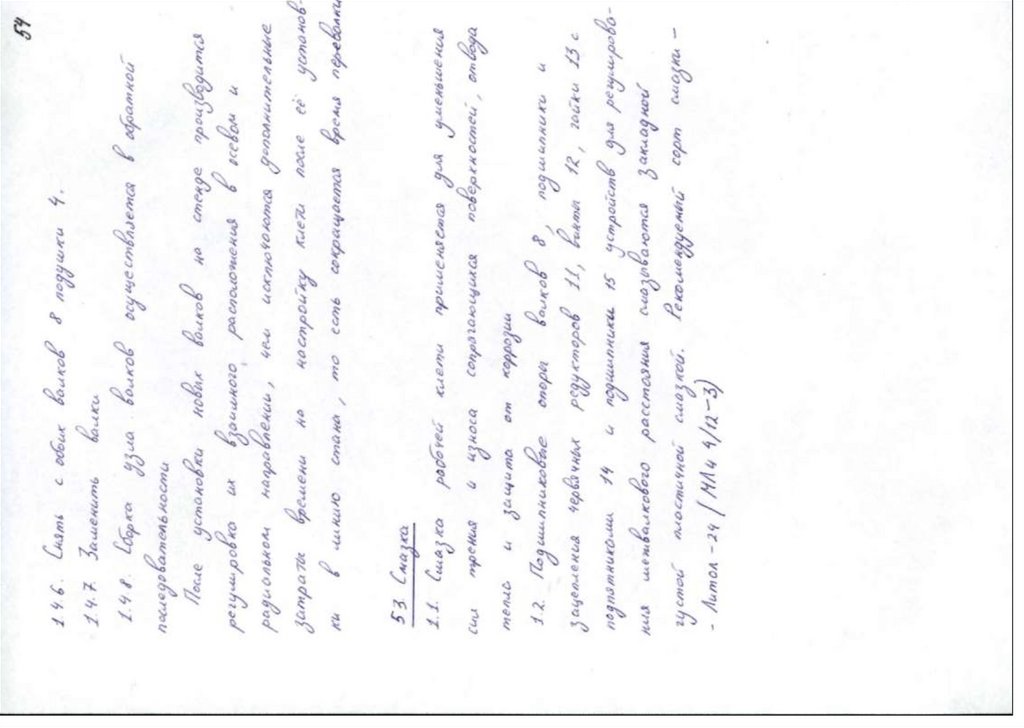 54
1.4.6. Снять с обоих валков 8 подушки 4.
1.4.7 Заменить валки
1.4.8. Сборка узла валков осуществляется в обратной
последовательности
После установки новых валков на стенде производится
регулировка их взаимного расположения в осевом и
радиальном направлении, чем исключаются дополнительные
затраты времени на настройку клети после её установ-
ки в линию стана, то есть сокращается время перевалки
53 Смазка
1.1. Смазка рабочей клети применяется для уменьшения
сил трения и износа сопрягающихся поверхностей, отвода
тепла и защита от коррозии
1.2. Подшипниковые опоры валков 8, подшипники и
зацепления червячных редукторов 11, винты 12, гайки 13 с
подпятниками 14 и подшипники 15 устройств для регулирова-
ния межвалкового расстояния смазываются закладной
густой пластичной смазкой. Рекомендуемый сорт смазки -
- Литол-24 (МЛи 4/12-3)